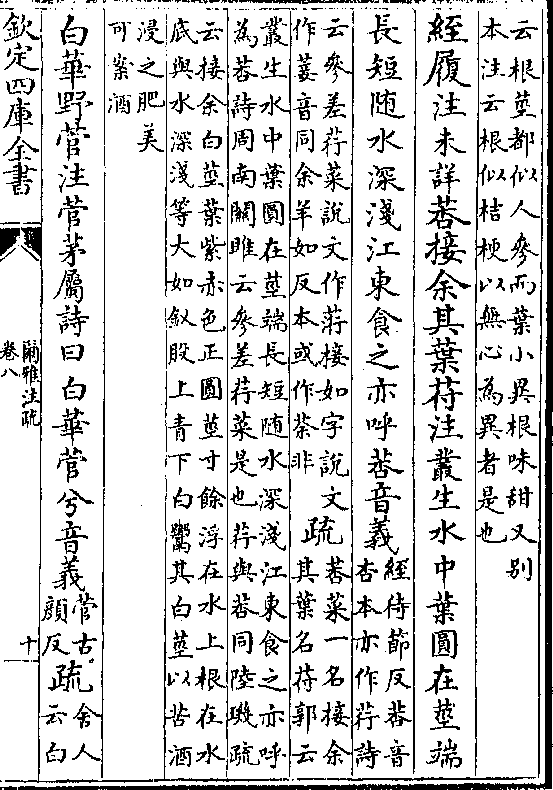 云根莖都似人參而葉小異根味甜又别
本注云根似桔梗以無心為異者是也
經履注未詳莕接余其葉苻注叢生水中葉圓在莖端
長短隨水深淺江東食之亦呼莕音義
經待節反莕音
杏本亦作荇詩
云參差荇菜說文作䓷接如字說文
作菨音同余羊如反本或作荼非
疏
莕菜一名接余
其葉名苻郭云
叢生水中葉圓在莖端長短隨水深淺江東食之亦呼
為莕詩周南關雎云參差荇菜是也荇與莕同陸璣疏
云接余白莖葉紫赤色正圓莖寸餘浮在水上根在水
底與水深淺等大如釵股上青下白鬻其白莖以苦酒
浸之肥美
可案酒
白華野菅注菅茅屬詩曰白華菅兮音義
菅古
顔反
疏
舍人
云白
欽定四庫全書
爾雅注疏
卷八
十